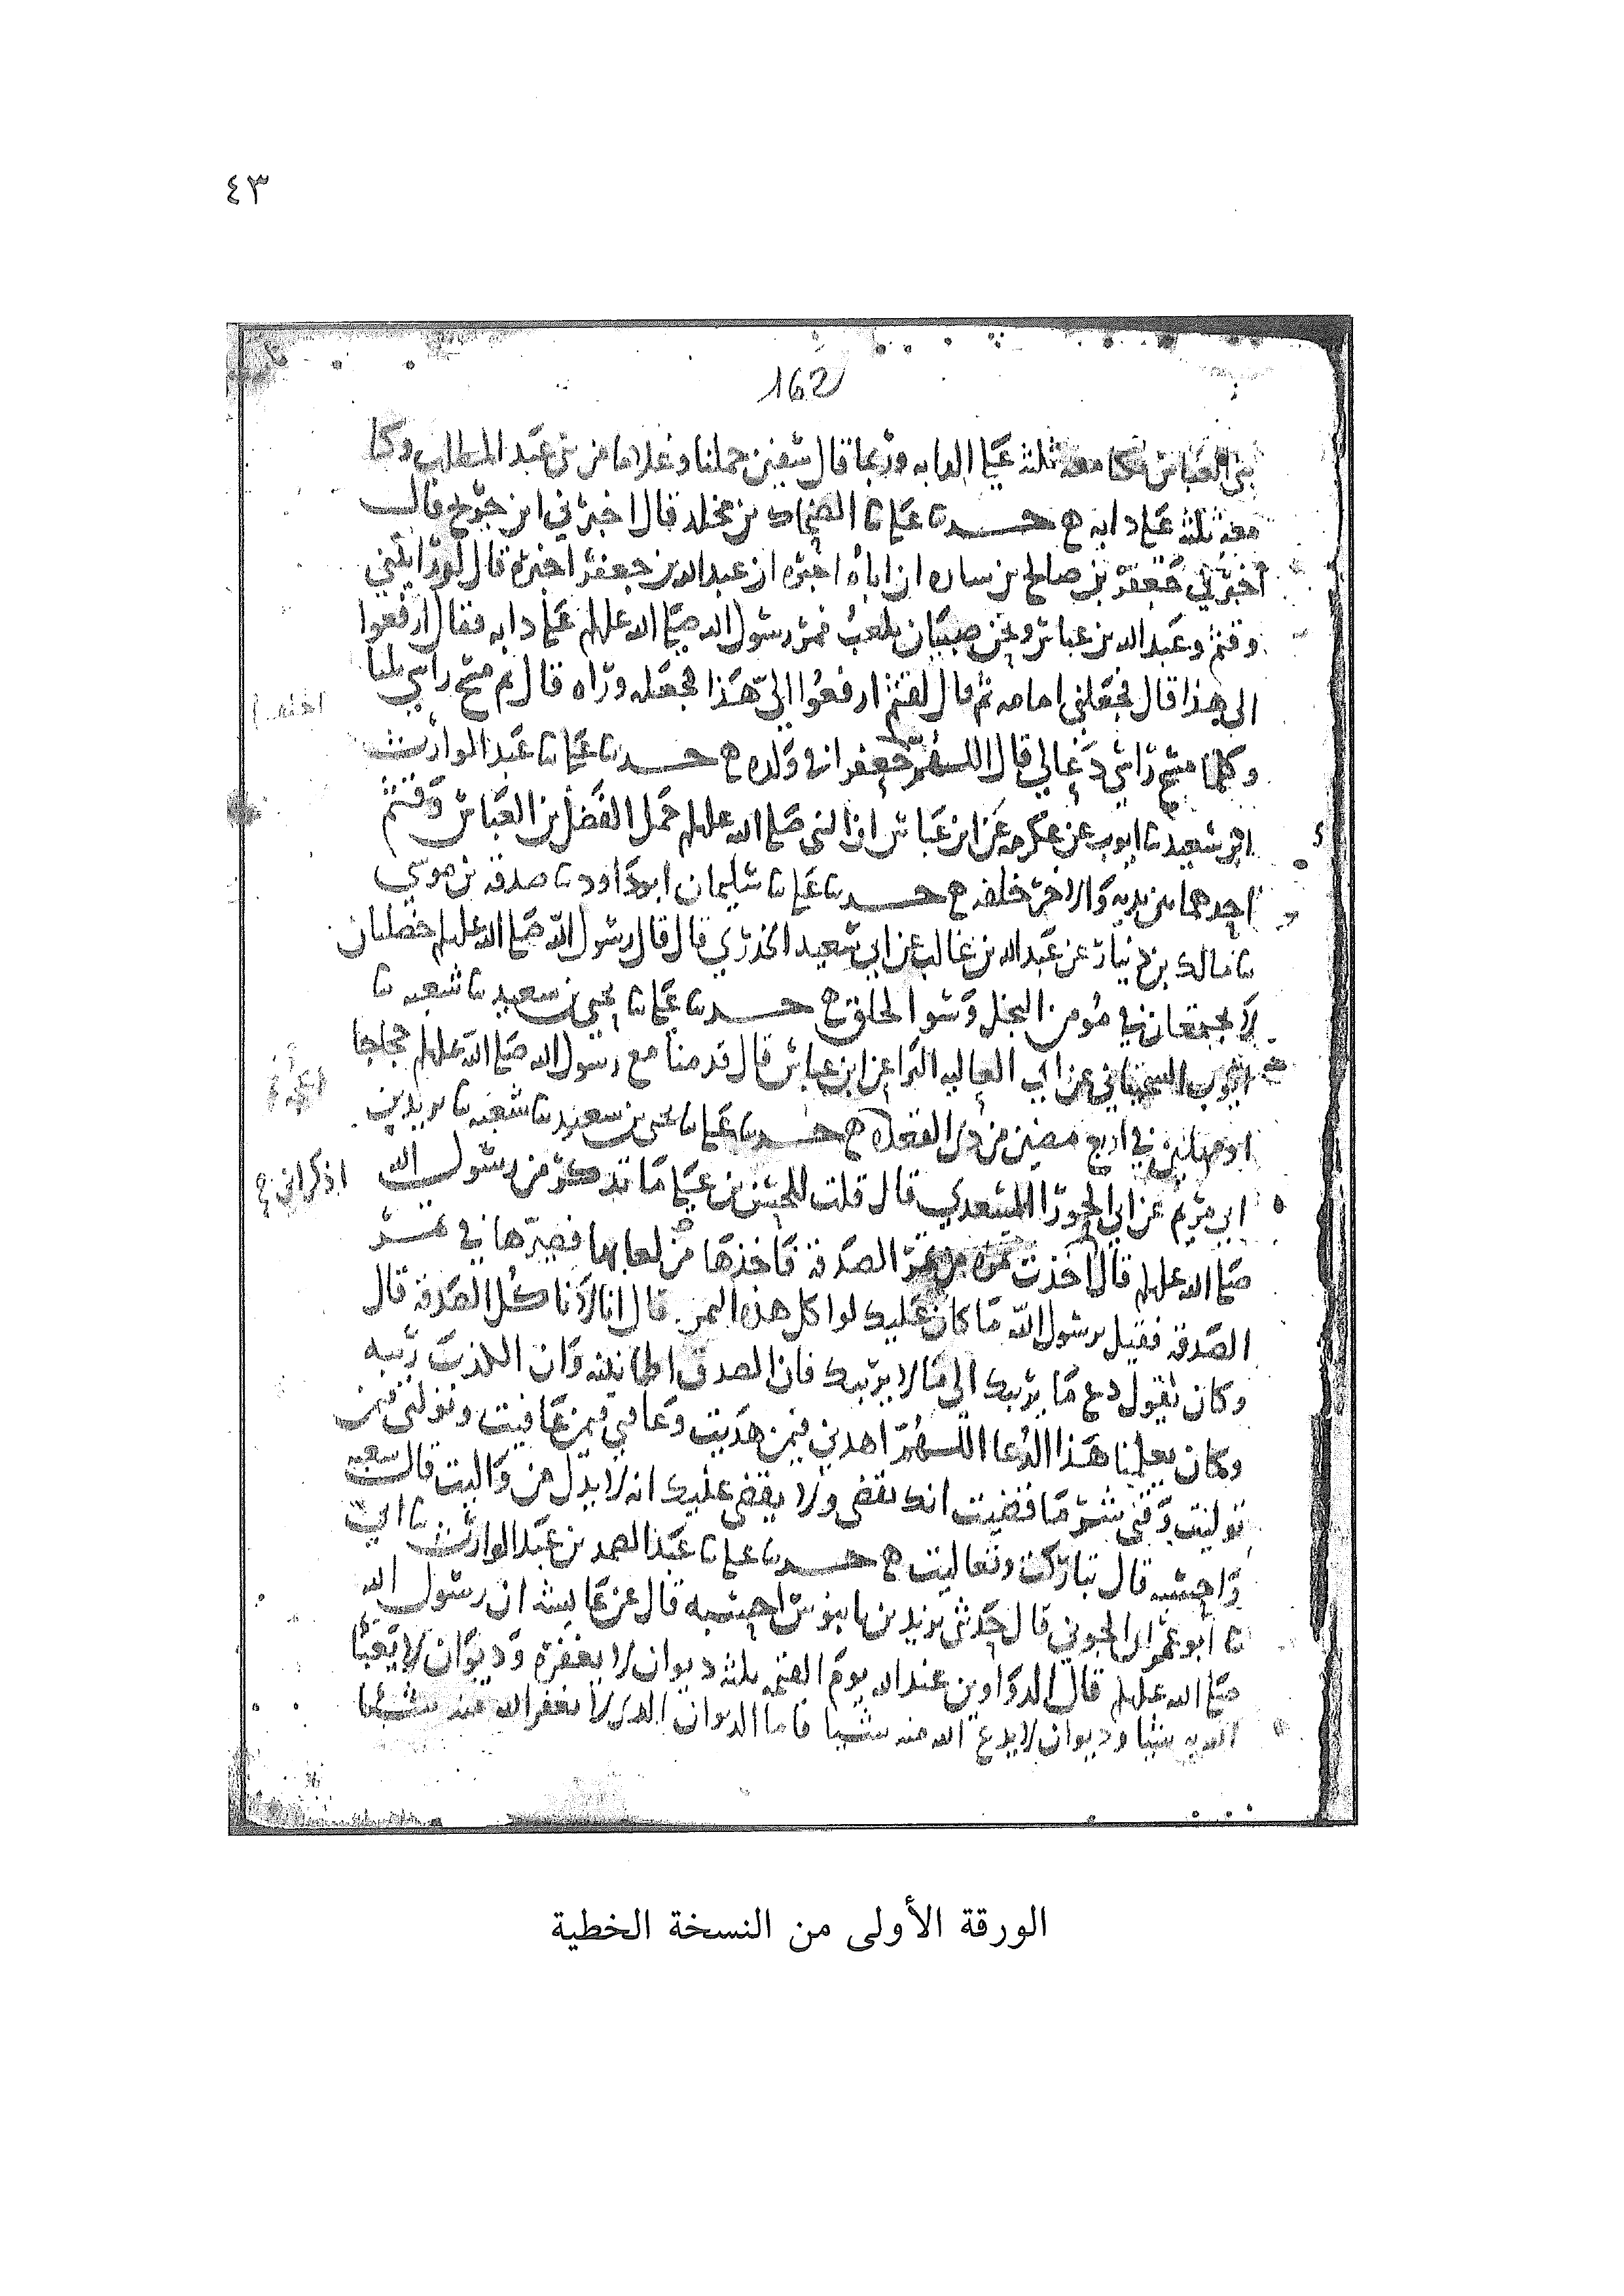 ٤٣
162
بني العباس وكا معه ثلثه على الدابه وربما قال سفين حملنا وغلاما من بني عبد المطلب وكا
معه ثلثه على دابه ح حدسا علي سا الضحاك بن مخلد قال اخبرني ابن جريج قال
اخبرني جعفر بن خالد بن ساره ان اباه اخبره ان عبد الله بن جعفر اخبره قال لو رايتني
وقثم وعبد الله بن عباس ونحن صبيان نلعب فمر رسول الله صلى الله عليه على دابه فقال ارفعوا
الي هذا قال فجعلني امامه ثم قال لقثم ارفعوا الي هذا فجعله وراه قال ثم مسح راسي ثلثا
وكلما مسح راسي دعا لي قال اللهم جعفرا في ولده ح حدسا علي سا عبد الوارث
ابن سعيد سا ايوب عن عكرمه عن ابن عباس ان النبي صلى الله عليه حمل الفضل بن العباس وقثم
احدهما بين يديه والاخر خلفه ح حدسا علي سا سليمان ابو داود سا صدقه بن موسي
سا مالك بن دينار عن عبد الله بن غالب عن ابي سعيد الخدري قال قال رسول الله صلى الله عليه خصلتان
لا يجتمعان في مومن البخل وسو الخلق ح حدسا علي سا يحيى بن سعيد سا شعبه سا
ايوب السختياني عن ابي العاليه البرا عن ابن عباس قال قدمنا مع رسول الله صلى الله عليه حجاجا
في اربع مضين من ذي القعده ح حدسا علي سا يحيى بن سعيد سا شعبه سا بريد بن
ابي مريم عن ابي الحورا السعدي قال قلت للحسن بن علي ما تذكر من رسول الله
اذكر اني
صلى الله عليه قال اخذت تمره من تمر الصدقه فاخذها من لعابها فصيرها في تمر
الصدقه فقيل يرسول الله ما كان عليك لو اكل هذه التمر قال انا لا ناكل الصدقه قال
وكان يقول دع ما يريبك الى ما لا يريبك فان الصدق طمانينه وان الكذب ريبه
وكان يعلمنا هذا الدعا اللهم اهدني فيمن هديت وعافني فيمن عافيت وتولني فيمن
توليت وقني شر ما قضيت انك تقضي ولا يقضى عليك انه لا يذل من واليت قال شعبه
واحسبه قال تباركت وتعاليت ح حدسا علي سا عبد الصمد بن عبد الوارث سا ابي
سا ابو عمران الجوني قال حدثني يزيد بن بابنوس احسبه قال عن عايشه ان رسول الله
صلى الله عليه قال الدواوين عند الله يوم القيمه ثلثه ديوان لا يغفره وديوان لا يعبا
الله به شيئا وديوان لا يدع الله منه شيئا فاما الديوان الذي لا يغفر الله منه شيئا
الورقة الأولى من النسخة الخطية